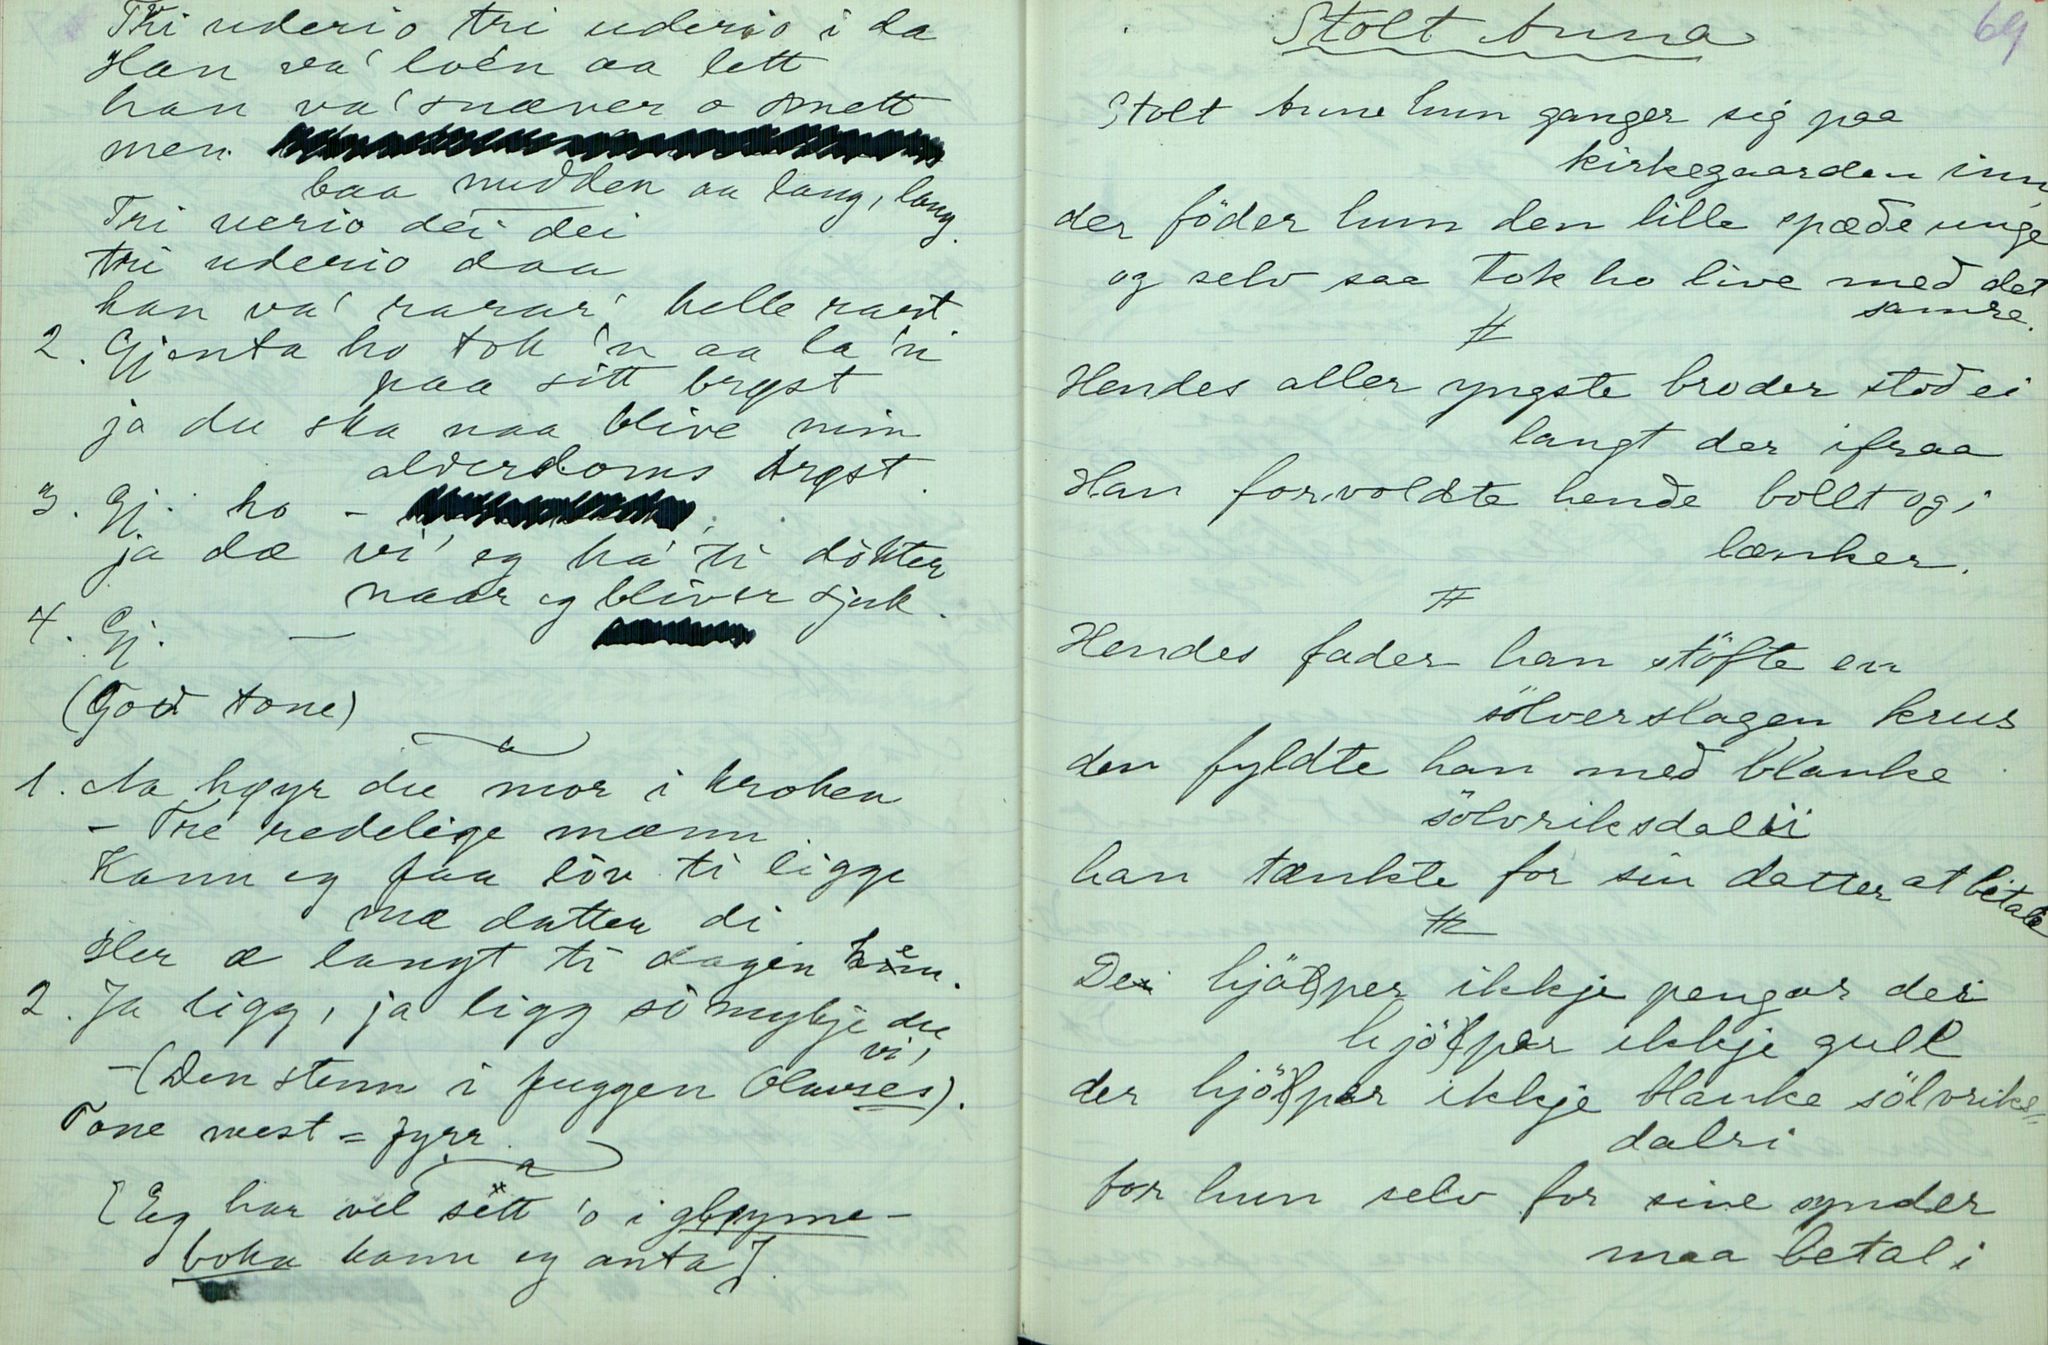 Tri uderio tri uderio i da
Han va' loén aa lett
han va' snæver o smett
men
baa midden aa lang, lang.
Tri uerio dei dei
tri uderio daa
han va' rarar' helle rart
2. Gjenta ho tok 'n aa la 'n
paa sitt brøst
ja du ska naa blive min
alderdoms trøst.
3. Gj. ho –
ja dæ vi' eg ha' ti dokter
naar eg bliver sjuk.
4. Gj. —
(God tone)
1. Aa høyr du mor i kroken
– Tre redelige mænn.
Kann eg faa löv ti ligge
mæ datter di
Her æ langt ti dagen hen.
2. Ja ligg, ja ligg so mykje du
vi'
– (Den stem i fuggen Olavses).
Tone mest = fyrr.
[Eg har vel sett 'o i gløyme-
boka kann eg anta].
69
Stolt Anna
Stolt Anne hun ganger sig paa
kirkegaarden inn,
der föder hun den lille spæde unge
og selv saa tok ho live med det
samre.
#
Hendes aller yngste broder stod ei
langt der ifraa
Han forvoldte hende bollt og i
lænker.
#
Hendes fader han stöfte en
sölverslagen krus
den fyldte han med blanke
sölvriksdalii
han tænkte for sin datter at betale
#
Dei hjölper ikkje pengar dei
hjölper ikkje gull
der hjölper ikkje blanke sölvriks=
dalri
for hun selv for sine synder
maa betali